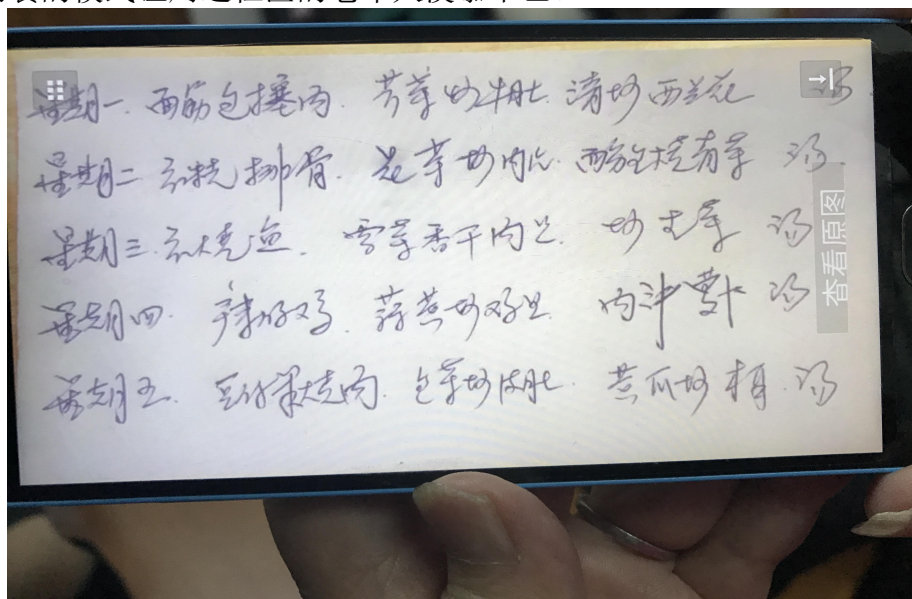 星期一. 面筋包揣肉. 芹菜炒牛肚. 清炒西兰花 汤
星期二 红烧排骨. 花菜炒肉片. 面筋烧青菜 汤
星期三 红烧鱼. 雪菜香干肉丝. 炒生菜 汤
星期四. 辣子鸡. 蒜苔炒鸡丝. 肉沫萝卜 汤
星期五. 豆付果烧肉. 包菜炒肚. 苦瓜炒 汤
查看原图